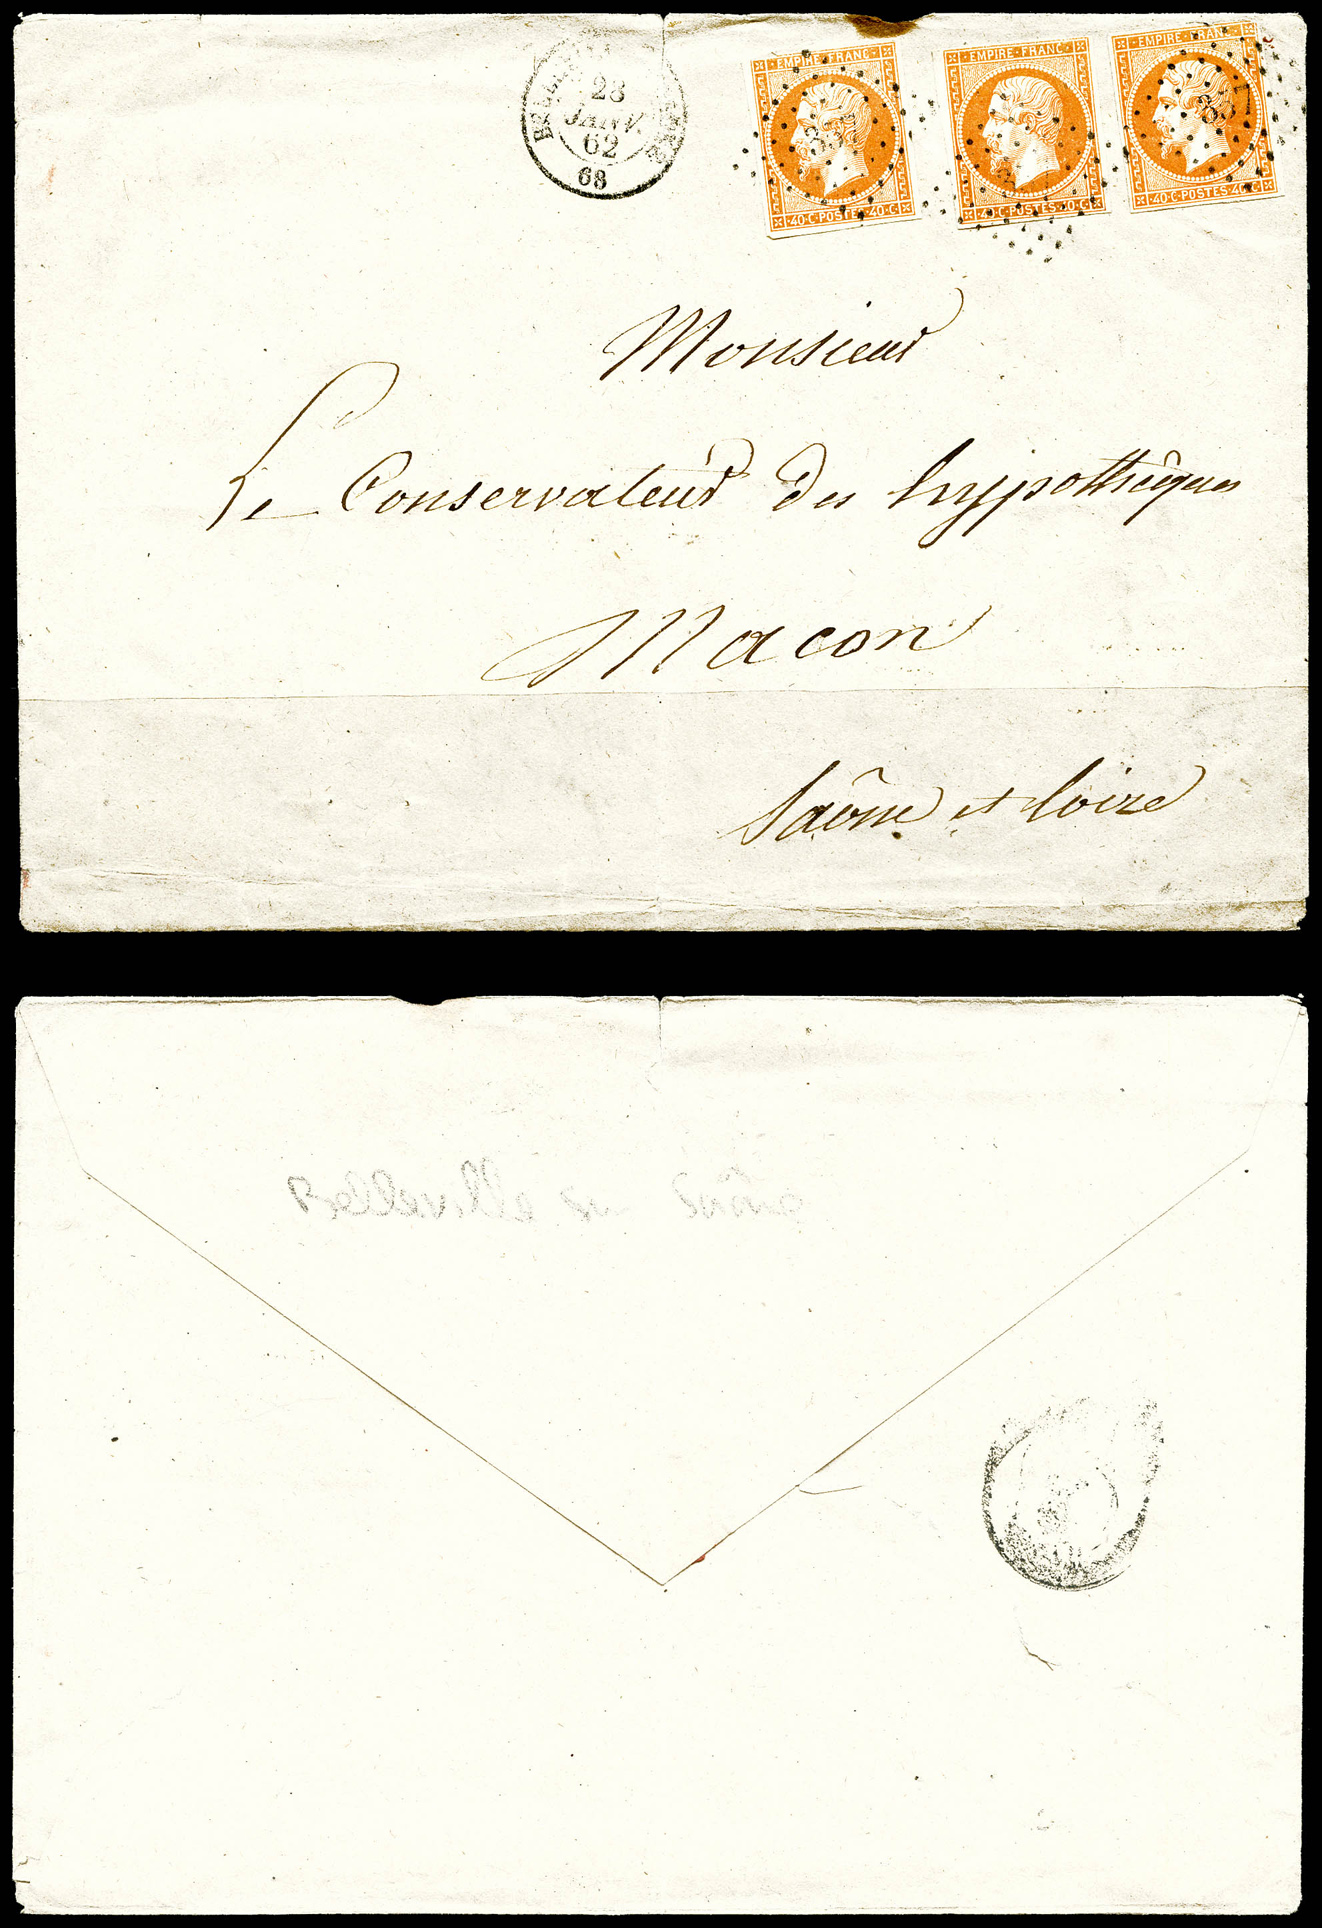 28
JANV.
62
68
EMPIRE·FRANC·
40·C·POSTES·40·C
EMPIRE·FRANC·
40·C·POSTES·40·C
EMPIRE·FRANC·
40·C·POSTES·40·C
Monsieur
Le Conservateur des hypothèques
Macon
Saône et Loire
Belleville sur Saône